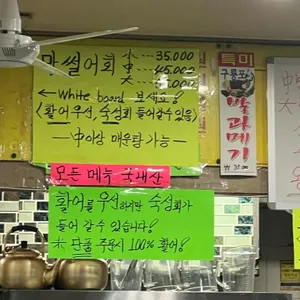 막썰어회 小 --- 35.000
中 --- 45.000
大
← White board 보세요?
(활어우선, 숙성회 들어갈수있음)
― 中이상 매운탕 가능 ―
모든 메뉴 국내산
활어를 우선하지만 숙성회가
들어 갈수 있습니다?
大 단품 주문시 100% 활어?
특미
구룡포
과메기